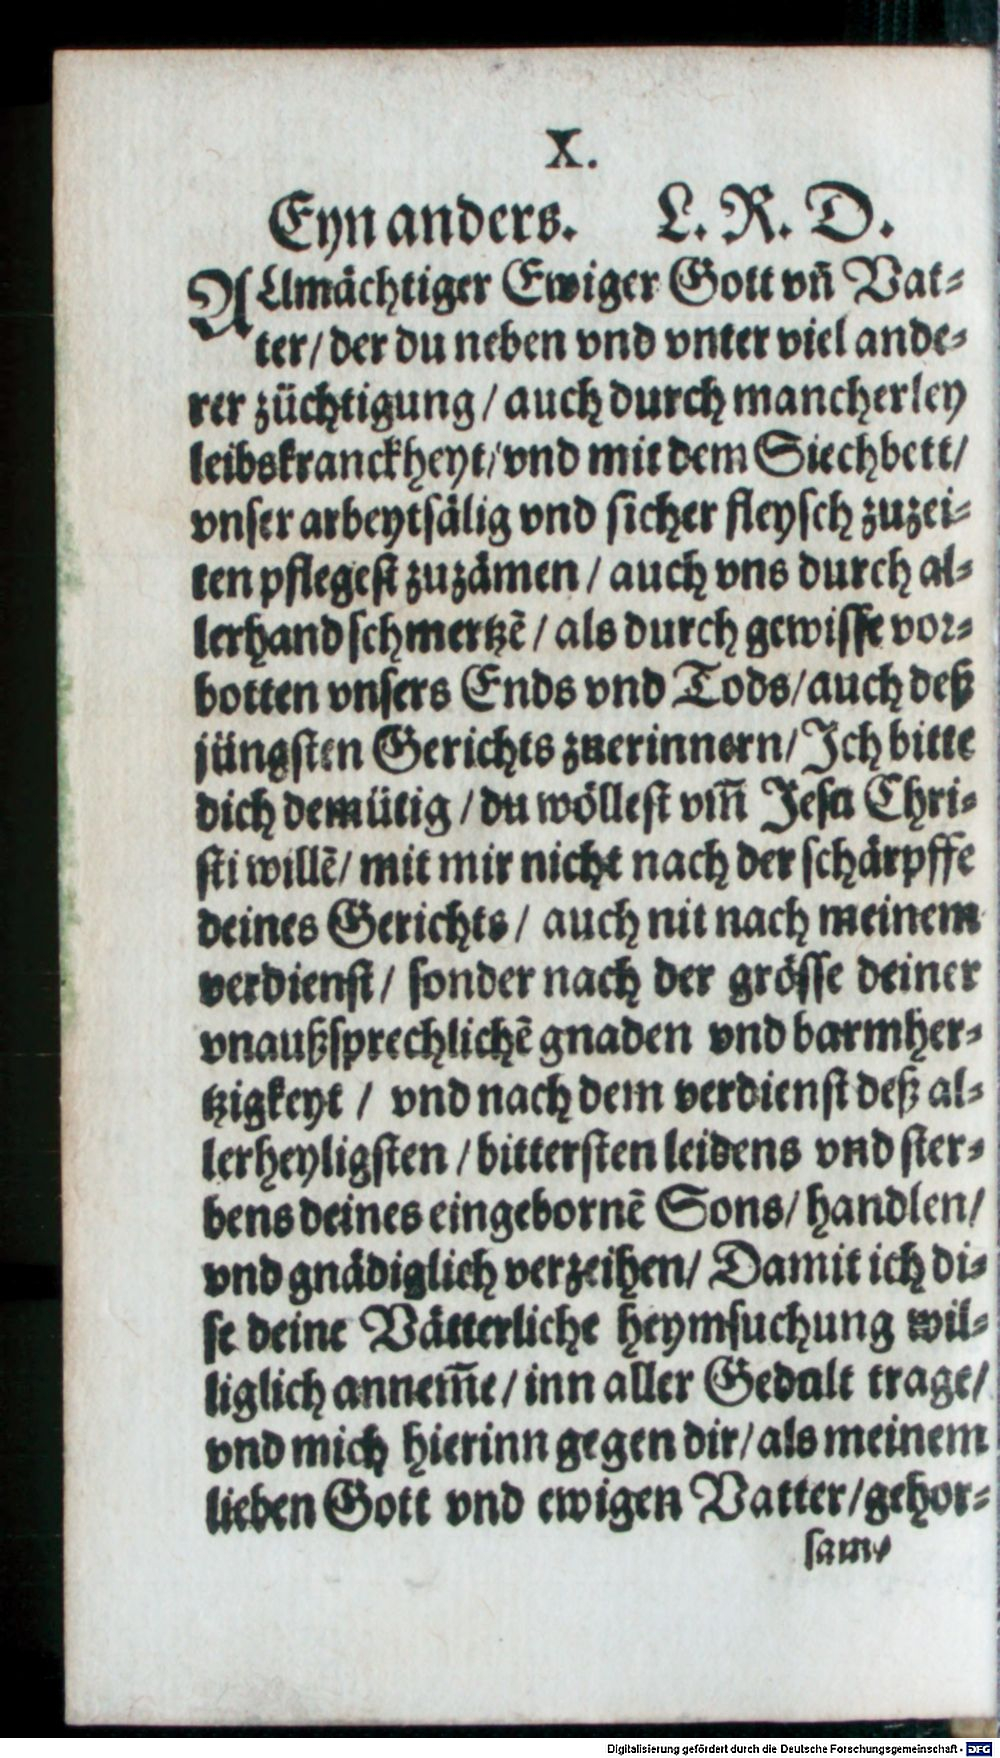 X.
Eyn anders. L. R. D.
Allmächtiger Ewiger Gott vñ Vat-
ter/ der du neben vnd vnter viel ande-
rer züchtigung/ auch durch mancherley
leibskranckheyt/ vnd mit dem Siechbett/
vnser arbeytsälig vnd sicher fleysch zuzei-
ten pflegest zuzämen/ auch vns durch al-
lerhand schmertzẽ/ als durch gewisse vor-
botten vnsers Ends vnd Tods/ auch deß
jüngsten Gerichts zuerinnern/ Ich bitte
dich demütig/ du wöllest vm̃ Jesu Chri-
sti willẽ/ mit mir nicht nach der schärpffe
deines Gerichts/ auch nit nach meinem
verdienst/ sonder nach der grösse deiner
vnaußsprechlichẽ gnaden vnd barmher-
tzigkeyt/ vnd nach dem verdienst deß al-
lerheyligsten/ bittersten leidens vnd ster-
bens deines eingebornẽ Sons/ handlen/
vnd gnädiglich verzeihen/ Damit ich di-
se deine Vätterliche heymsuchung wil-
liglich annem̃e/ inn aller Gedult trage/
vnd mich hierinn gegen dir/ als meinem
lieben Gott vnd ewigen Vatter/ gehor-
same
Digitalisierung gefördert durch die Deutsche Forschungsgemeinschaft - DFG